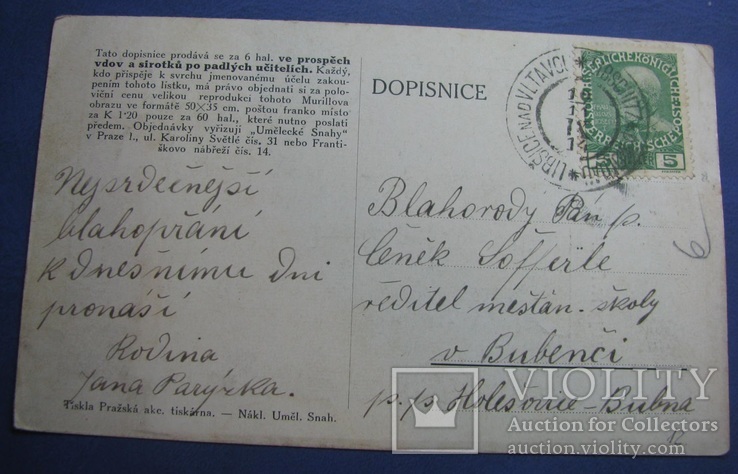 Tato dopisnice prodává se za 6 hal. ve prospěch
vdov a sirotků po padlých učitelích. Každý,
kdo přispěje k svrchu jmenovanému účelu zakou-
pením tohoto lístku, má právo objednati si za polo-
viční cenu velikou reprodukci tohoto Murillova
obrazu ve formátě 50×35 cm, poštou franko místo
za K 1·20 pouze za 60 hal., které nutno poslati
předem. Objednávky vyřizují „Umělecké Snahy"
v Praze I., ul. Karoliny Světlé čís. 31 nebo Franti-
škovo nábřeží čís. 14.
Nejsrdečnější
blahopřání
k dnešnímu dni
pronáší
Rodina
Jana Parýzka.
Tiskla Pražská akc. tiskárna. — Nákl. Uměl. Snah.
DOPISNICE
LIBŠICE NAD VLTAVOU
5
Blahorodý Pán p.
Čeněk Sofferle
ředitel měšťan. školy
v Bubenči
p. p. Holešovice Bubna
6
VIOLITY
Auction for Collectors
auction.violity.com